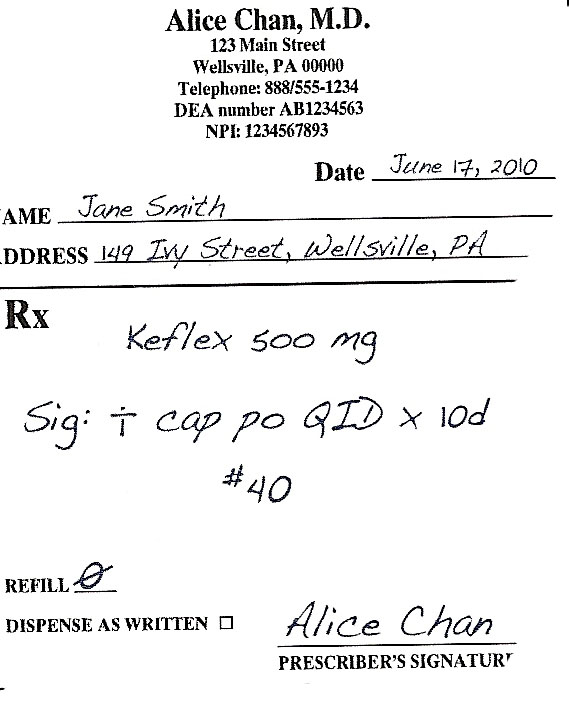 Alice Chan, M.D.
123 Main Street
Wellsville, PA 00000
Telephone: 888/555-1234
DEA number AB1234563
NPI: 1234567893
Date June 17, 2010
AME Jane Smith
DDRESS 149 Ivy Street, Wellsville, PA
Rx
Keflex 500 mg
Sig: i cap po QID x 10d
#40
REFILL Ø
DISPENSE AS WRITTEN ☐
Alice Chan
PRESCRIBER'S SIGNATUR